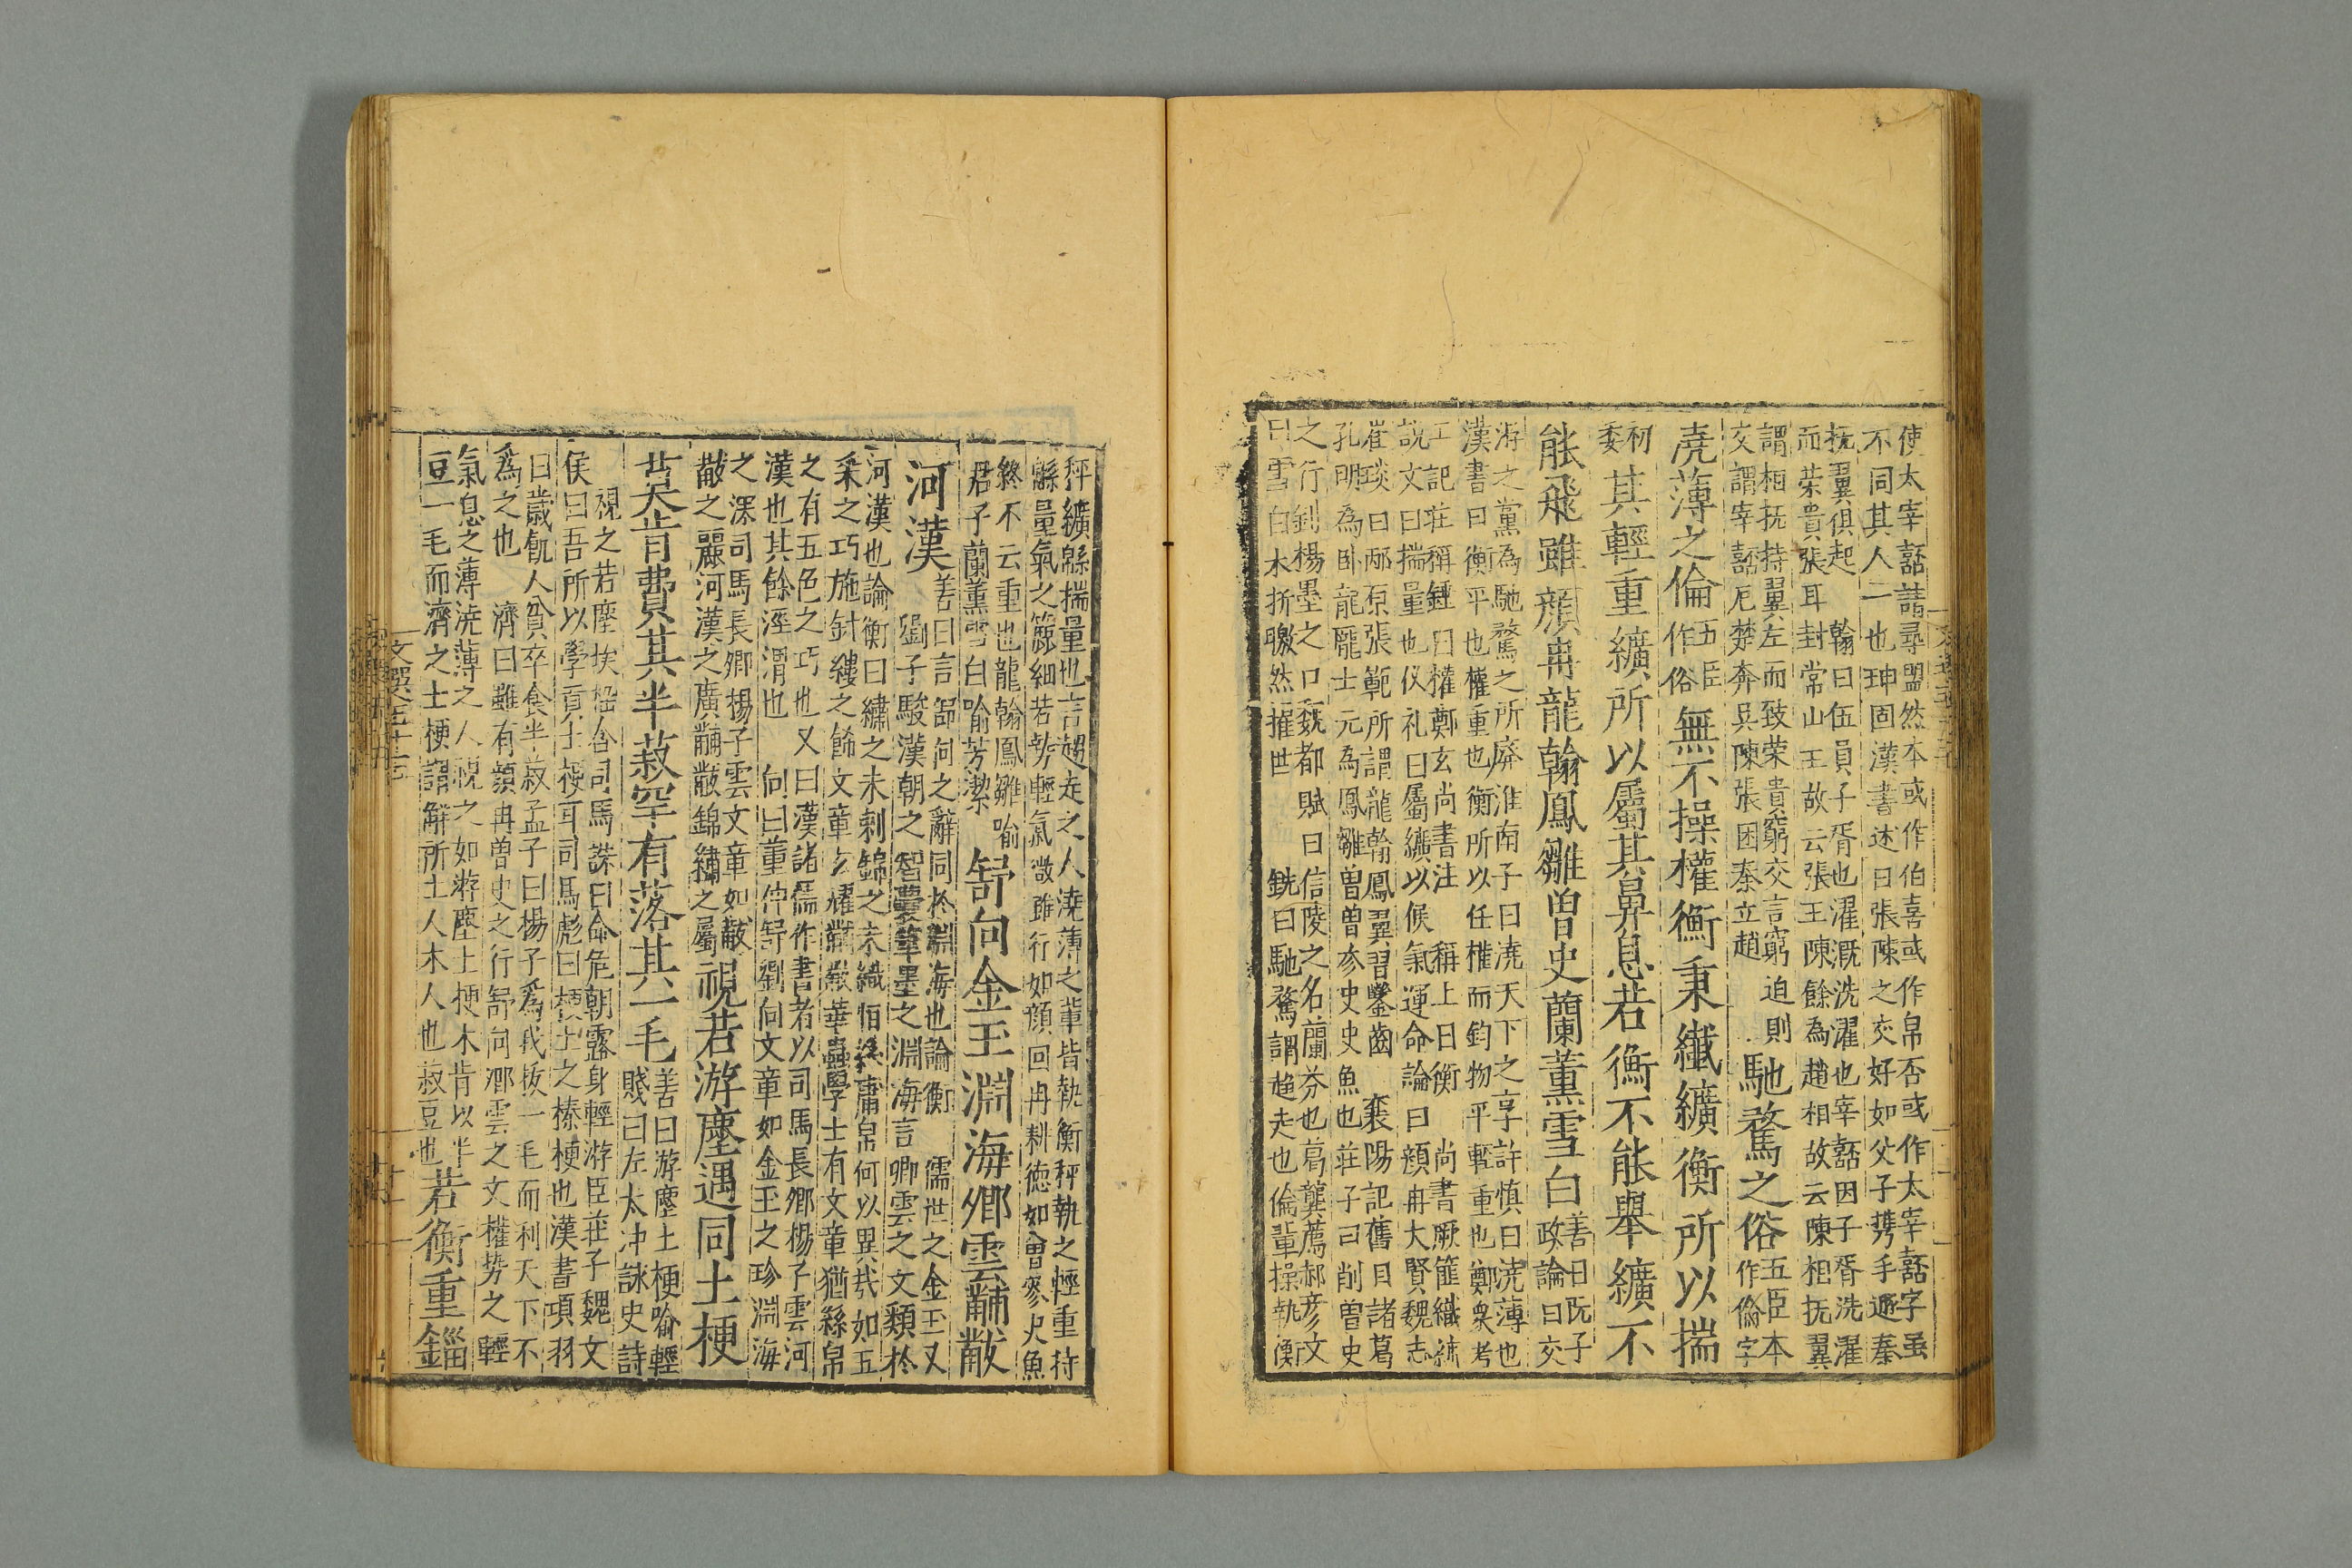 使太宰嚭請尋盟然本或作伯喜或作帛否或作太宰嚭字虽
不同其人一也珅固漢書述曰張陳之交好如父子㩗手遯秦
抚翼俱起 翰曰伍員子胥也濯溉洗濯也宰嚭因子胥洗濯
而荣貴張耳封常山王故云張王陳餘為趙相故云陳相抚翼
謂相抚持翼左而致荣貴窮交言窮迫則
交謂宰嚭厄楚奔吴陳張困秦立趙
馳騖之俗
五臣本
作倫字
澆薄之倫
五臣
作俗
無不操權衡秉纖纊衡所以揣
其輕重纊所以屬其鼻息若衡不能舉纊不
能飛雖顔冉龍翰鳳雛曾史蘭薰雪白
善曰阮子
政論曰交
游之黨為馳騖之所廃淮南子曰澆天下之享許慎曰澆薄也
漢書曰衡平也權重也衡所以任權而鈞物平軽重也鄭衆考
工記注稱錘曰權鄭玄尚書注 稱上曰衡 尚書厥篚纖纊
說文曰揣量也仪礼曰屬纊以候氣運命論曰顔冉大賢魏志
崔琰曰邴原張範所謂龍翰鳳翼習鑿齒 襄陽記舊目諸葛
孔明為卧龍龐士元為鳳雛曽曽参史史魚也莊子曰削曽史
之行鉗楊墨之口魏都賦曰信陵之名蘭芬也葛龔薦郝彦文
曰雪白木折皦然摧世 銑曰馳騖謂趍走也倫輩操執衡
秤纊緜揣量也言趨走之人澆薄之輩皆執衡秤執之輕重持
緜量氣之麄細若势輕氣微虽行如顔回冉耕徳如曾參史魚
終不云重也龍翰鳳雛喻
君子蘭薫雪白喻芳潔
舒向金玉淵海卿雲黼黻
河漢
善曰言舒向之辭同於淵海也論衡 儒世之金玉又
劉子駿漢朝之智囊筆墨之淵海言卿雲之文類於
河漢也論衡曰繡之未刺錦之未織恒絲庸帛何以異㢤如五
采之巧施針縷之飾文章玄耀黼黻華蟲學士有文章猶絲帛
之有五色之巧也又曰漢諸儒作書者以司馬長卿楊子雲河
漢也其餘涇渭也 向曰董仲舒劉向文章如金玉之珍淵海
之深司馬長卿揚子雲文章如黻
黻之麗河漢之廣黼黻錦繡之屬
視若游塵遇同土梗
莫肯費其半菽罕有落其一毛
善曰游塵土梗喻輕
賤曰左太冲詠史詩
視之若塵埃嵇含司馬誄曰命危朝露身輕游臣莊子魏文
侯曰吾所以學真土梗耳司馬彪曰梗土之榛梗也漢書項羽
曰歲飢人貧卒食半菽孟子曰楊子為我拔一毛而利天下不
為之也 濟曰雖有顔冉曽史之行舒向卿雲之文權势之輕
氣息之薄澆薄之人視之如游塵土梗木肯以半
豆一毛而濟之士梗謂觧所土人木人也菽豆也
若衡重錙
文選卷五十五